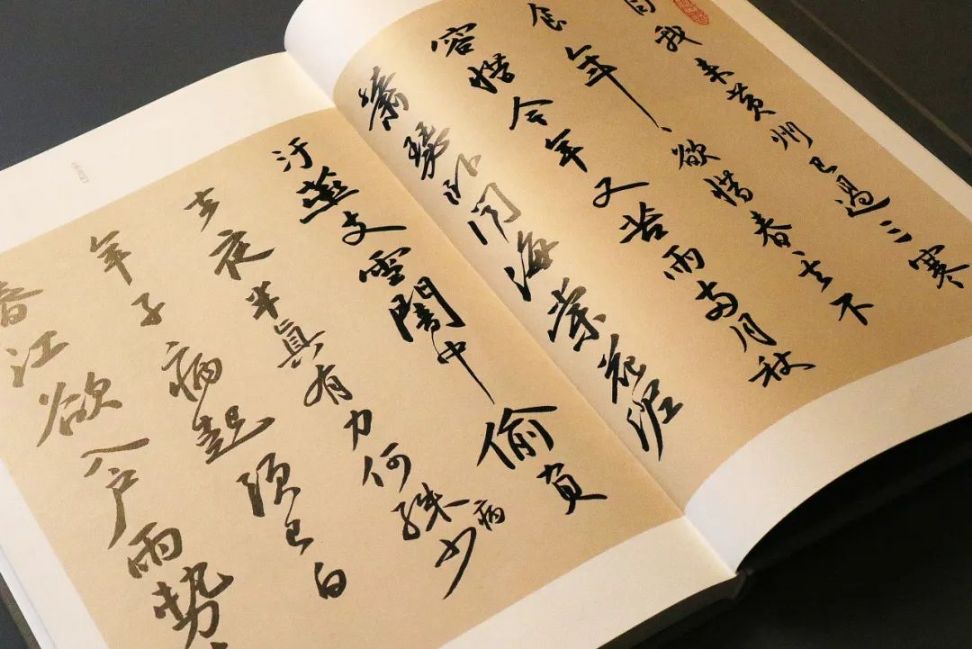 自我来黄州已過三寒
食年、欲惜春、去不
容惜今年又苦雨两月秋
蕭瑟卧聞海棠花泥
汙燕支雪闇中偷負
去夜半真有力何殊病少
年子病起頭已白
春江欲入户雨势